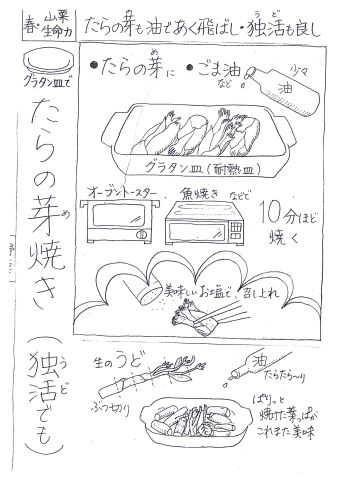 春・山菜
生命力
たらの芽も油であく飛ばし・独活も良し
うど
グラタン皿で
たらの芽焼き(独活でも)
め
うど
●たらの芽に ●ごま油
め
など
少々
油
グラタン皿(耐熱皿)
オーブントースター、
魚焼き などで
10分ほど
焼く
美味しいお塩で、召し上れ
生のうど
ぶつ切り
油
たらたら〜り
ぱりっと
焼けた葉っぱが
これまた美味